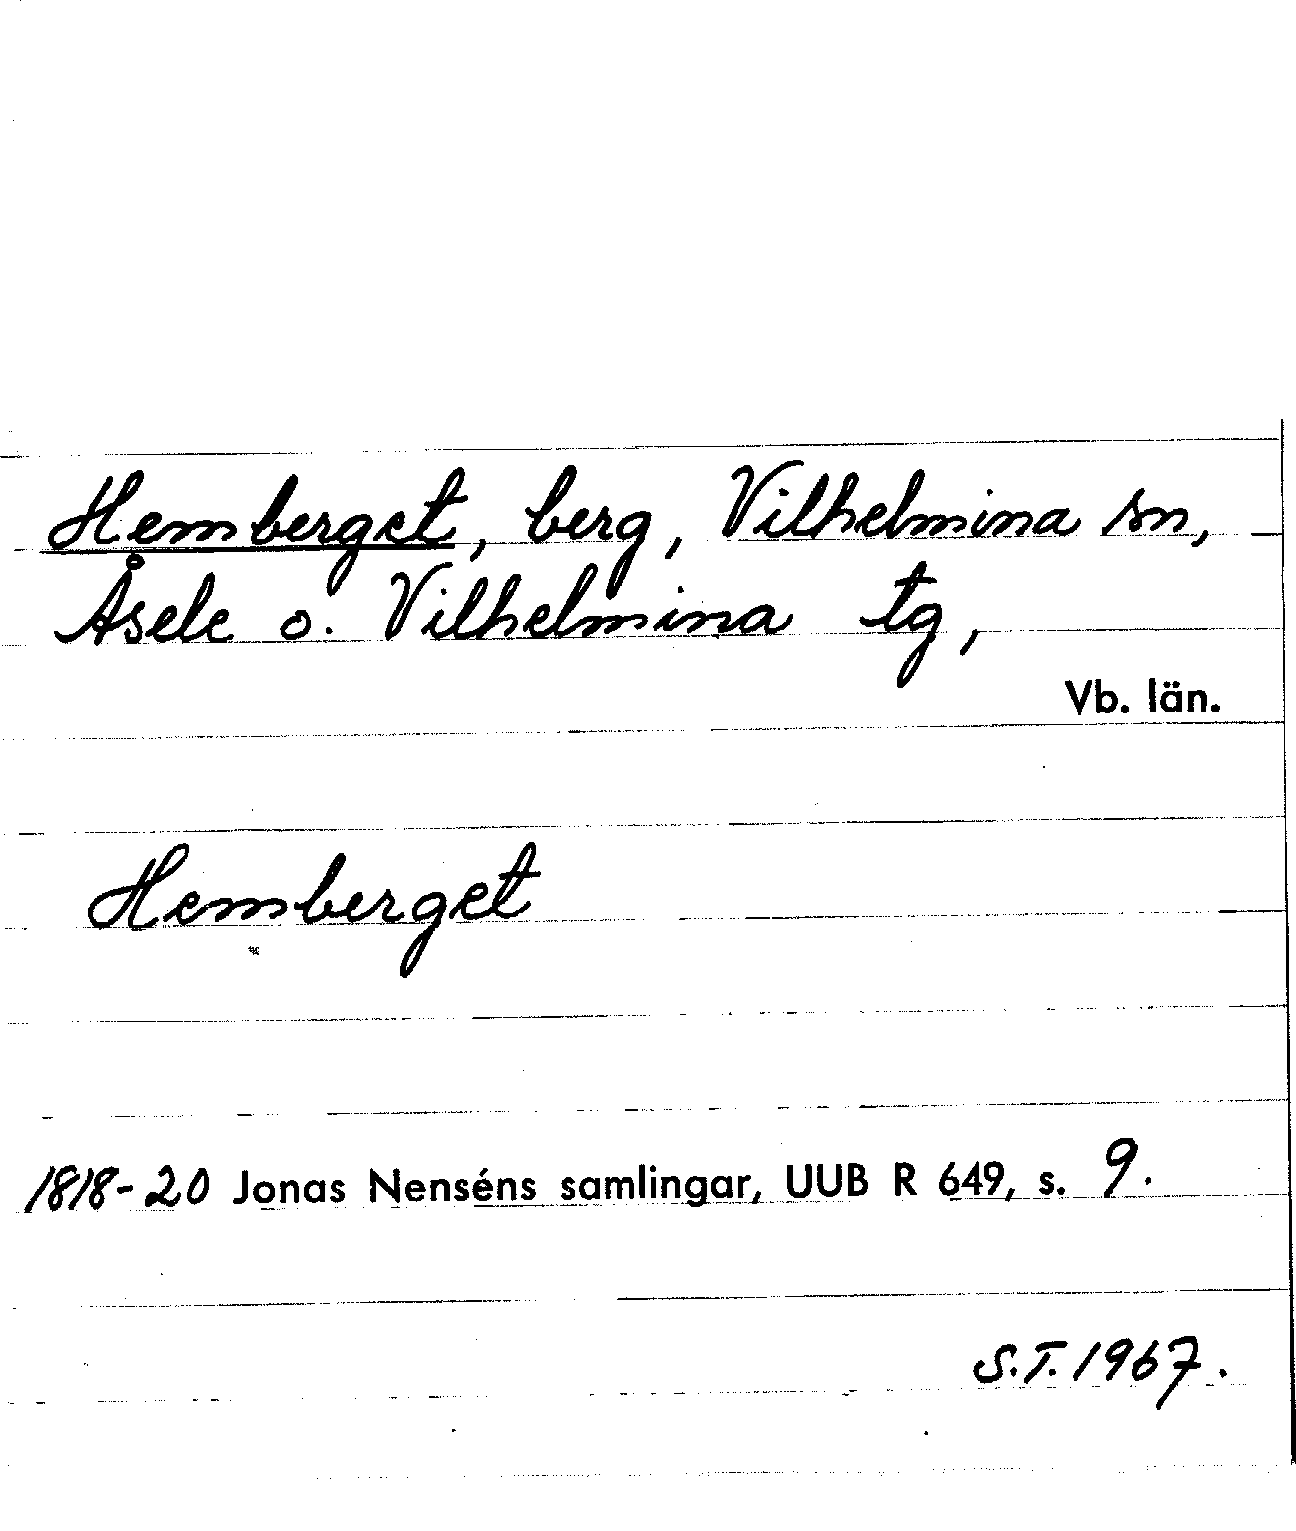 Hemberget, berg, Vilhelmina sn,
Åsele o. Vilhelmina tg,
Vb. län.
Hemberget
1818-20 Jonas Nenséns samlingar, UUB R 649, s. 9.
S.T. 1967.